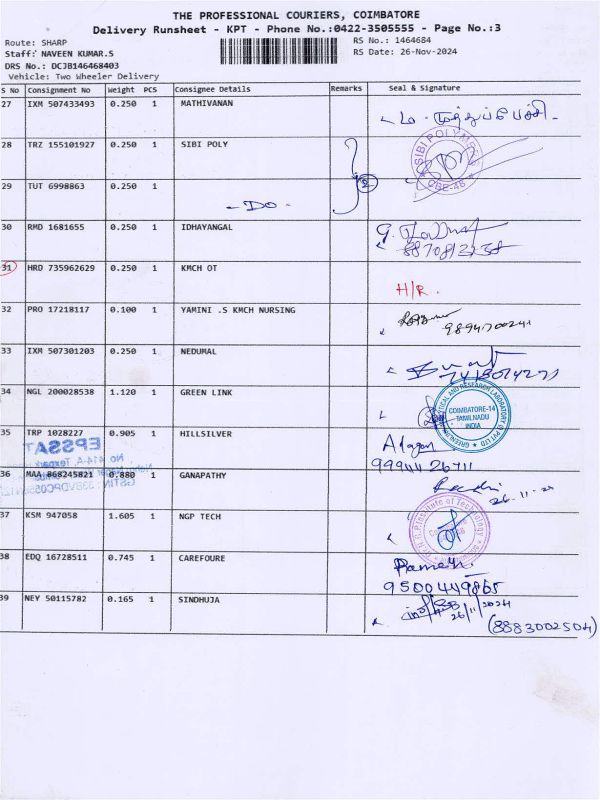 THE PROFESSIONAL COURIERS, COIMBATORE
Delivery Runsheet - KPT - Phone No.:0422-3505555 - Page No.:3
Route: SHARP
RS No.: 1464684
Staff: NAVEEN KUMAR.S
RS Date: 26-Nov-2024
DRS No.: DCJB146468403
Vehicle: Two Wheeler Delivery
S No Consignment No Weight PCS Consignee Details Remarks Seal & Signature
27 IXM 507433493 0.250 1 MATHIVANAN
28 TRZ 155101927 0.250 1 SIBI POLY
SIBI POLYMERS
CBE-46
29 TUT 6998863 0.250 1
- DO - 2
30 RMD 1681655 0.250 1 IDHAYANGAL
31 HRD 735962629 0.250 1 KMCH OT
H/R.
32 PRO 17218117 0.100 1 YAMINI .S KMCH NURSING
9894700241
33 IXM 507301203 0.250 1 NEDUMAL
34 NGL 200028538 1.120 1 GREEN LINK
COIMBATORE-14
TAMILNADU
INDIA
35 TRP 1028227 0.905 1 HILLSILVER
EPSSAT
36 MAA 868245821 0.880 1 GANAPATHY
26-11-24
37 KSM 947058 1.605 1 NGP TECH
Institute of Technology
38 EDQ 16728511 0.745 1 CAREFOURE
9500449865
39 NEY 50115782 0.165 1 SINDHUJA
26/11/2024
(8883002504)